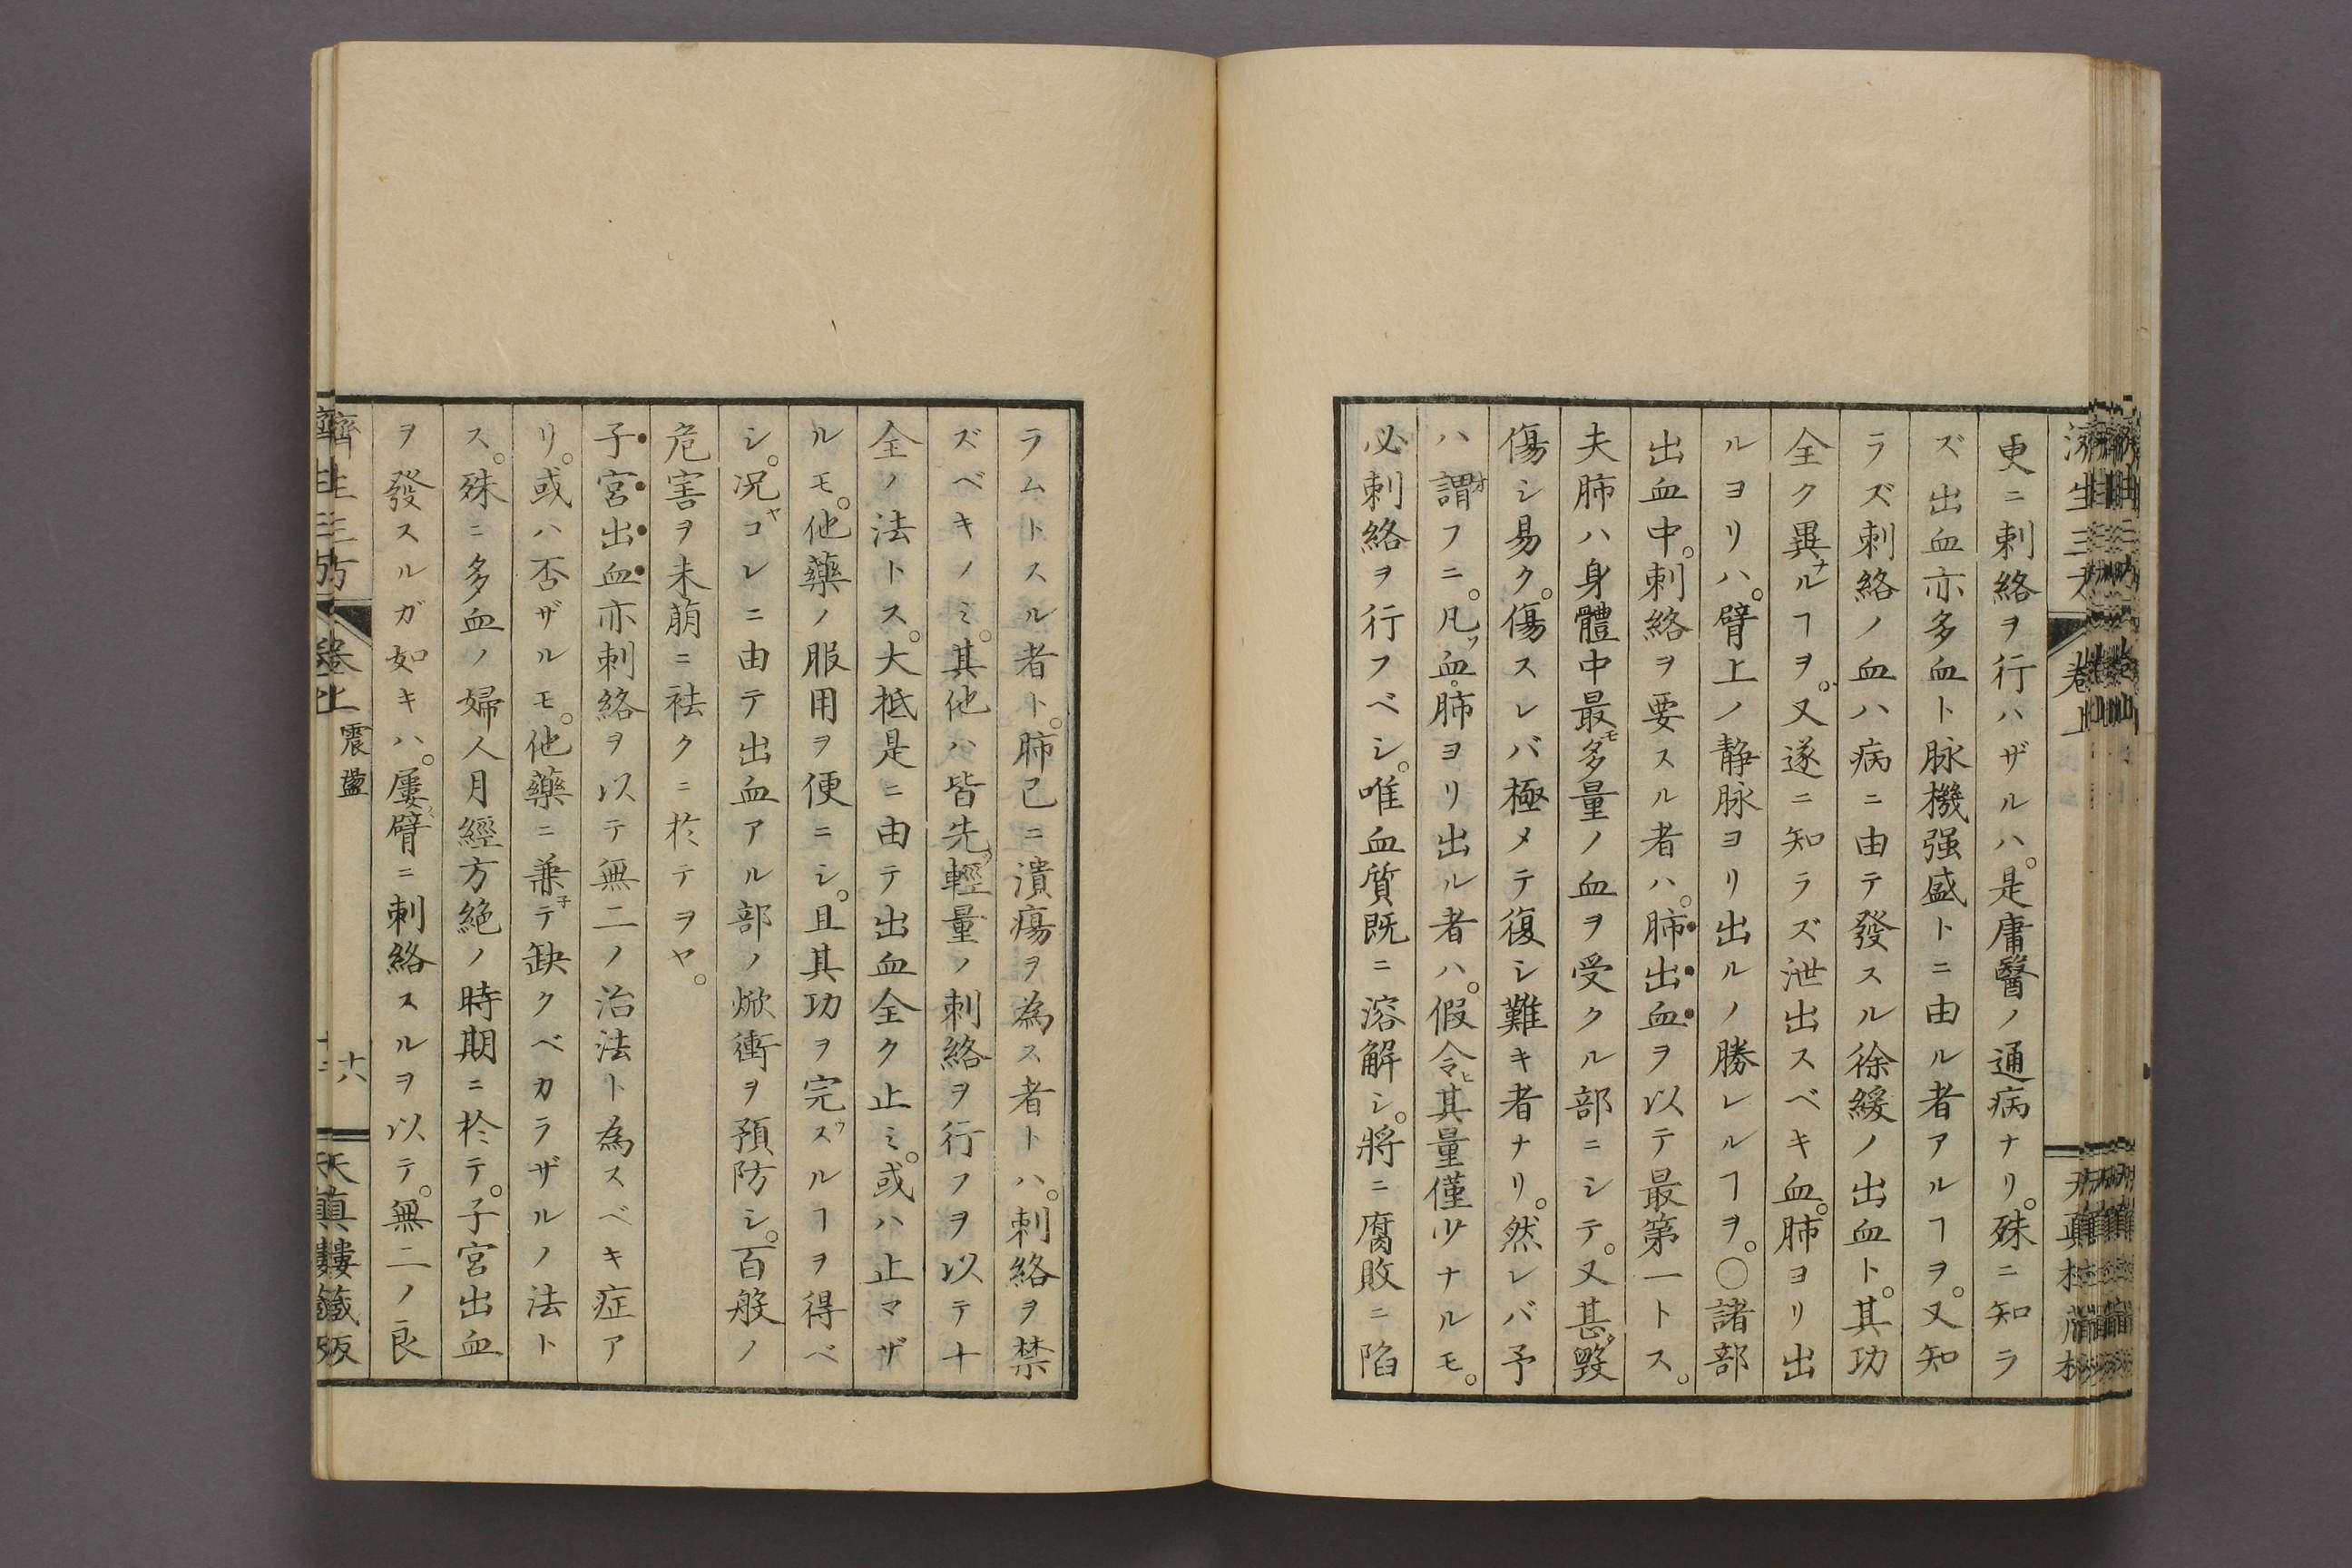 更ニ刺絡ヲ行ハザルハ。是庸醫ノ通病ナリ。殊ニ知ラ
ズ出血亦多血ト脉機强盛トニ由ル者アルヿヲ。又知
ラズ刺絡ノ血ハ病ニ由テ發スル徐緩ノ出血ト。其功
全ク異ナルヿヲ。又遂ニ知ラズ泄出スベキ血。肺ヨリ出
ルヨリハ。臂上ノ静脉ヨリ出ルノ勝レルヿヲ。○諸部
出血中。刺絡ヲ要スル者ハ。肺出血ヲ以テ最第一トス。
夫肺ハ身體中最モ多量ノ血ヲ受クル部ニシテ。又甚ダ毀
傷シ易ク。傷スレバ極メテ復シ難キ者ナリ。然レバ予
ハ謂オフニ。凡ソ血。肺ヨリ出ル者ハ。假令ヒ其量僅少ナルモ。
必刺絡ヲ行フベシ。唯血質既ニ溶解シ。將ニ腐敗ニ陷
ラムトスル者ト。肺已ニ潰瘍ヲ為ス者トハ。刺絡ヲ禁
ズベキノミ。其他ハ皆先ヅ輕量ノ刺絡ヲ行フヲ以テ十
全ノ法トス。大抵是ニ由テ出血全ク止ミ。或ハ止マザ
ルモ。他藥ノ服用ヲ便ニシ。且其功ヲ完ウスルヿヲ得ベ
シ。況ヤコレニ由テ出血アル部ノ焮衝ヲ預防シ。百般ノ
危害ヲ未萠ニ袪クニ於テヲヤ。
子宮出血亦刺絡ヲ以テ無二ノ治法ト為スベキ症ア
リ。或ハ否ザルモ。他藥ニ兼子テ缺クベカラザルノ法ト
ス。殊ニ多血ノ婦人月經方絶ノ時期ニ於テ。子宮出血
ヲ發スルガ如キハ。屢〻臂ニ刺絡スルヲ以テ。無二ノ良
濟生三方 卷上 震盪 十六 天眞樓藏版